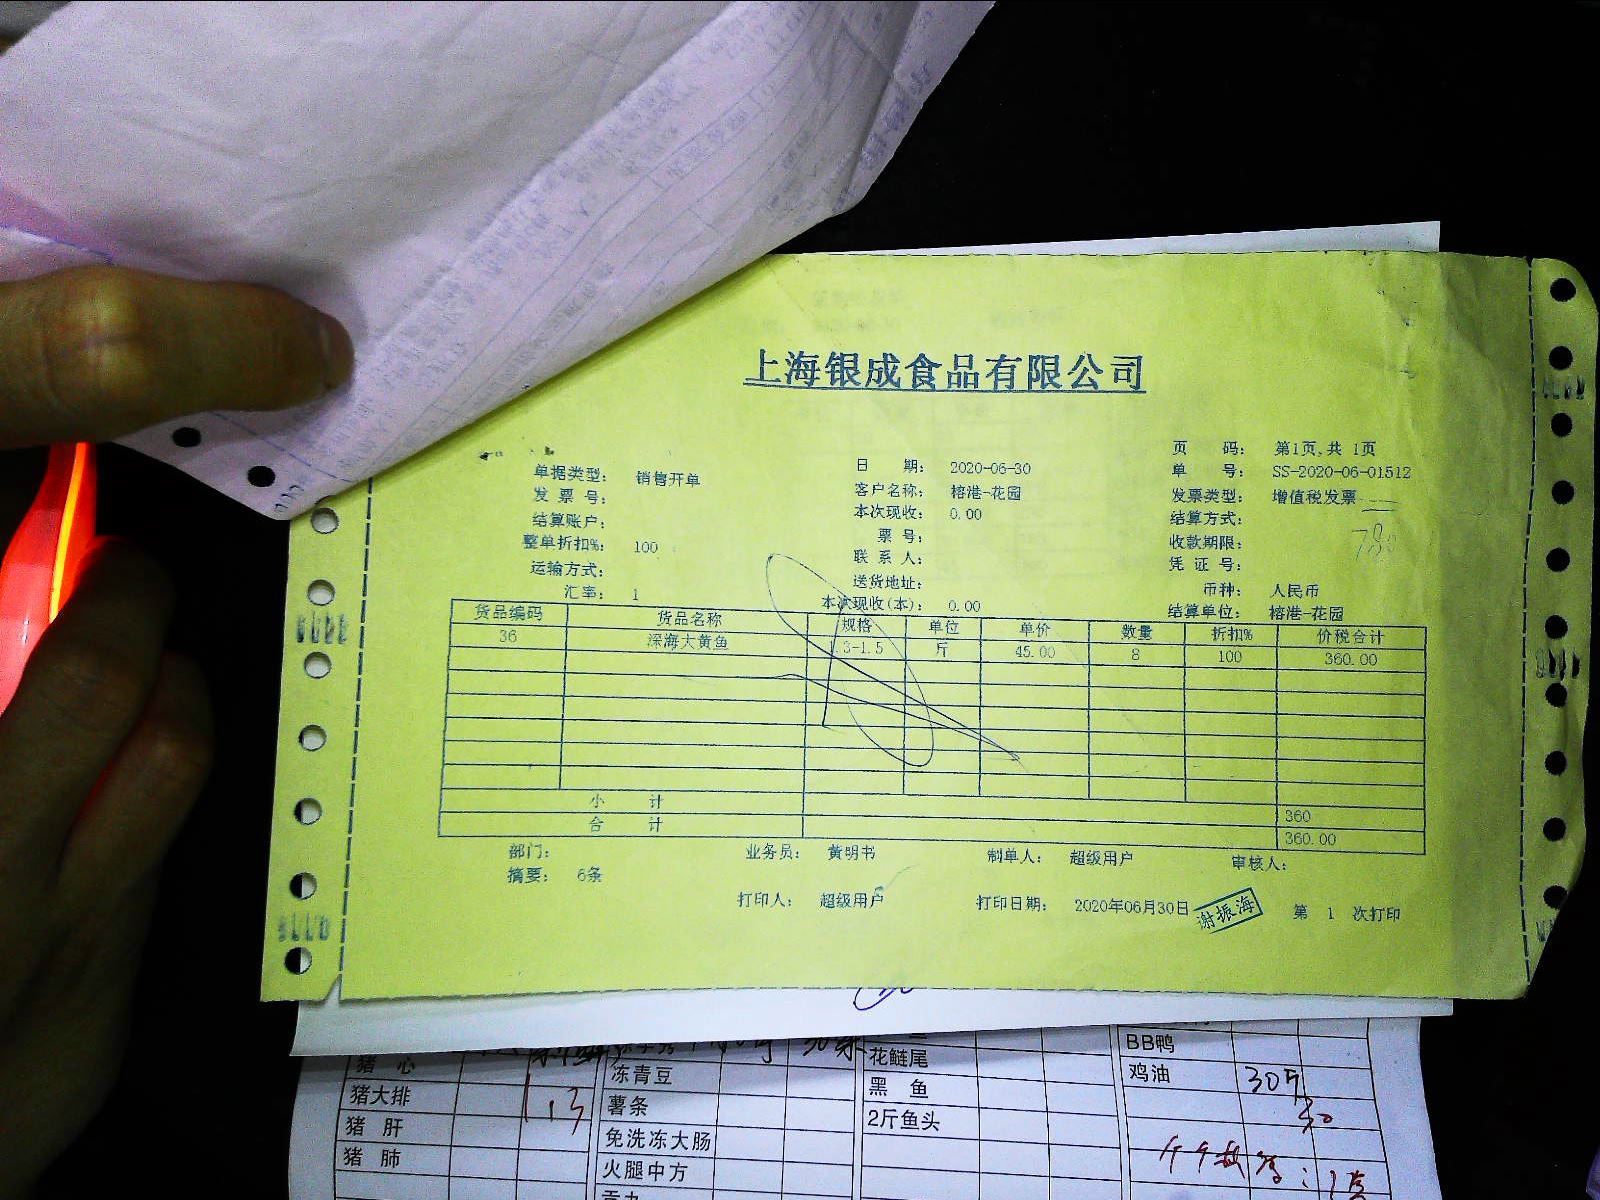 上海银成食品有限公司
单据类型： 销售开单 日 期： 2020-06-30 页 码： 第1页,共 1页
发 票 号： 客户名称： 榕港-花园 单 号： SS-2020-06-01512
结算账户： 本次现收： 0.00 发票类型： 增值税发票
整单折扣%： 100 票 号： 结算方式：
运输方式： 联 系 人： 收款期限：
汇率： 1 送货地址： 凭 证 号：
本次现收(本)： 0.00 币种： 人民币
结算单位： 榕港-花园
780
货品编码 货品名称 规格 单位 单价 数量 折扣% 价税合计
36 深海大黄鱼 1.3-1.5 斤 45.00 8 100 360.00
小 计 360
合 计 360.00
部门： 业务员： 黄明书 制单人： 超级用户 审核人：
摘要： 6条
打印人： 超级用户 打印日期： 2020年06月30日 谢振海 第 1 次打印
猪 心 花鲢尾 BB鸭
猪大排 13 冻青豆 黑 鱼 鸡油 30斤
猪 肝 薯条 2斤鱼头 30
猪 肺 免洗冻大肠
火腿中方